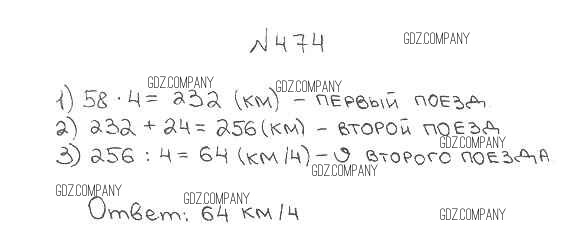 №474
GDZ.COMPANY
GDZ.COMPANY
GDZ.COMPANY
1) 58 · 4 = 232 (км) – первый поезд
2) 232 + 24 = 256 (км) – второй поезд
GDZ.COMPANY
3) 256 : 4 = 64 (км/ч) – υ второго поезда
GDZ.COMPANY
GDZ.COMPANY
GDZ.COMPANY
Ответ: 64 км/ч
GDZ.COMPANY